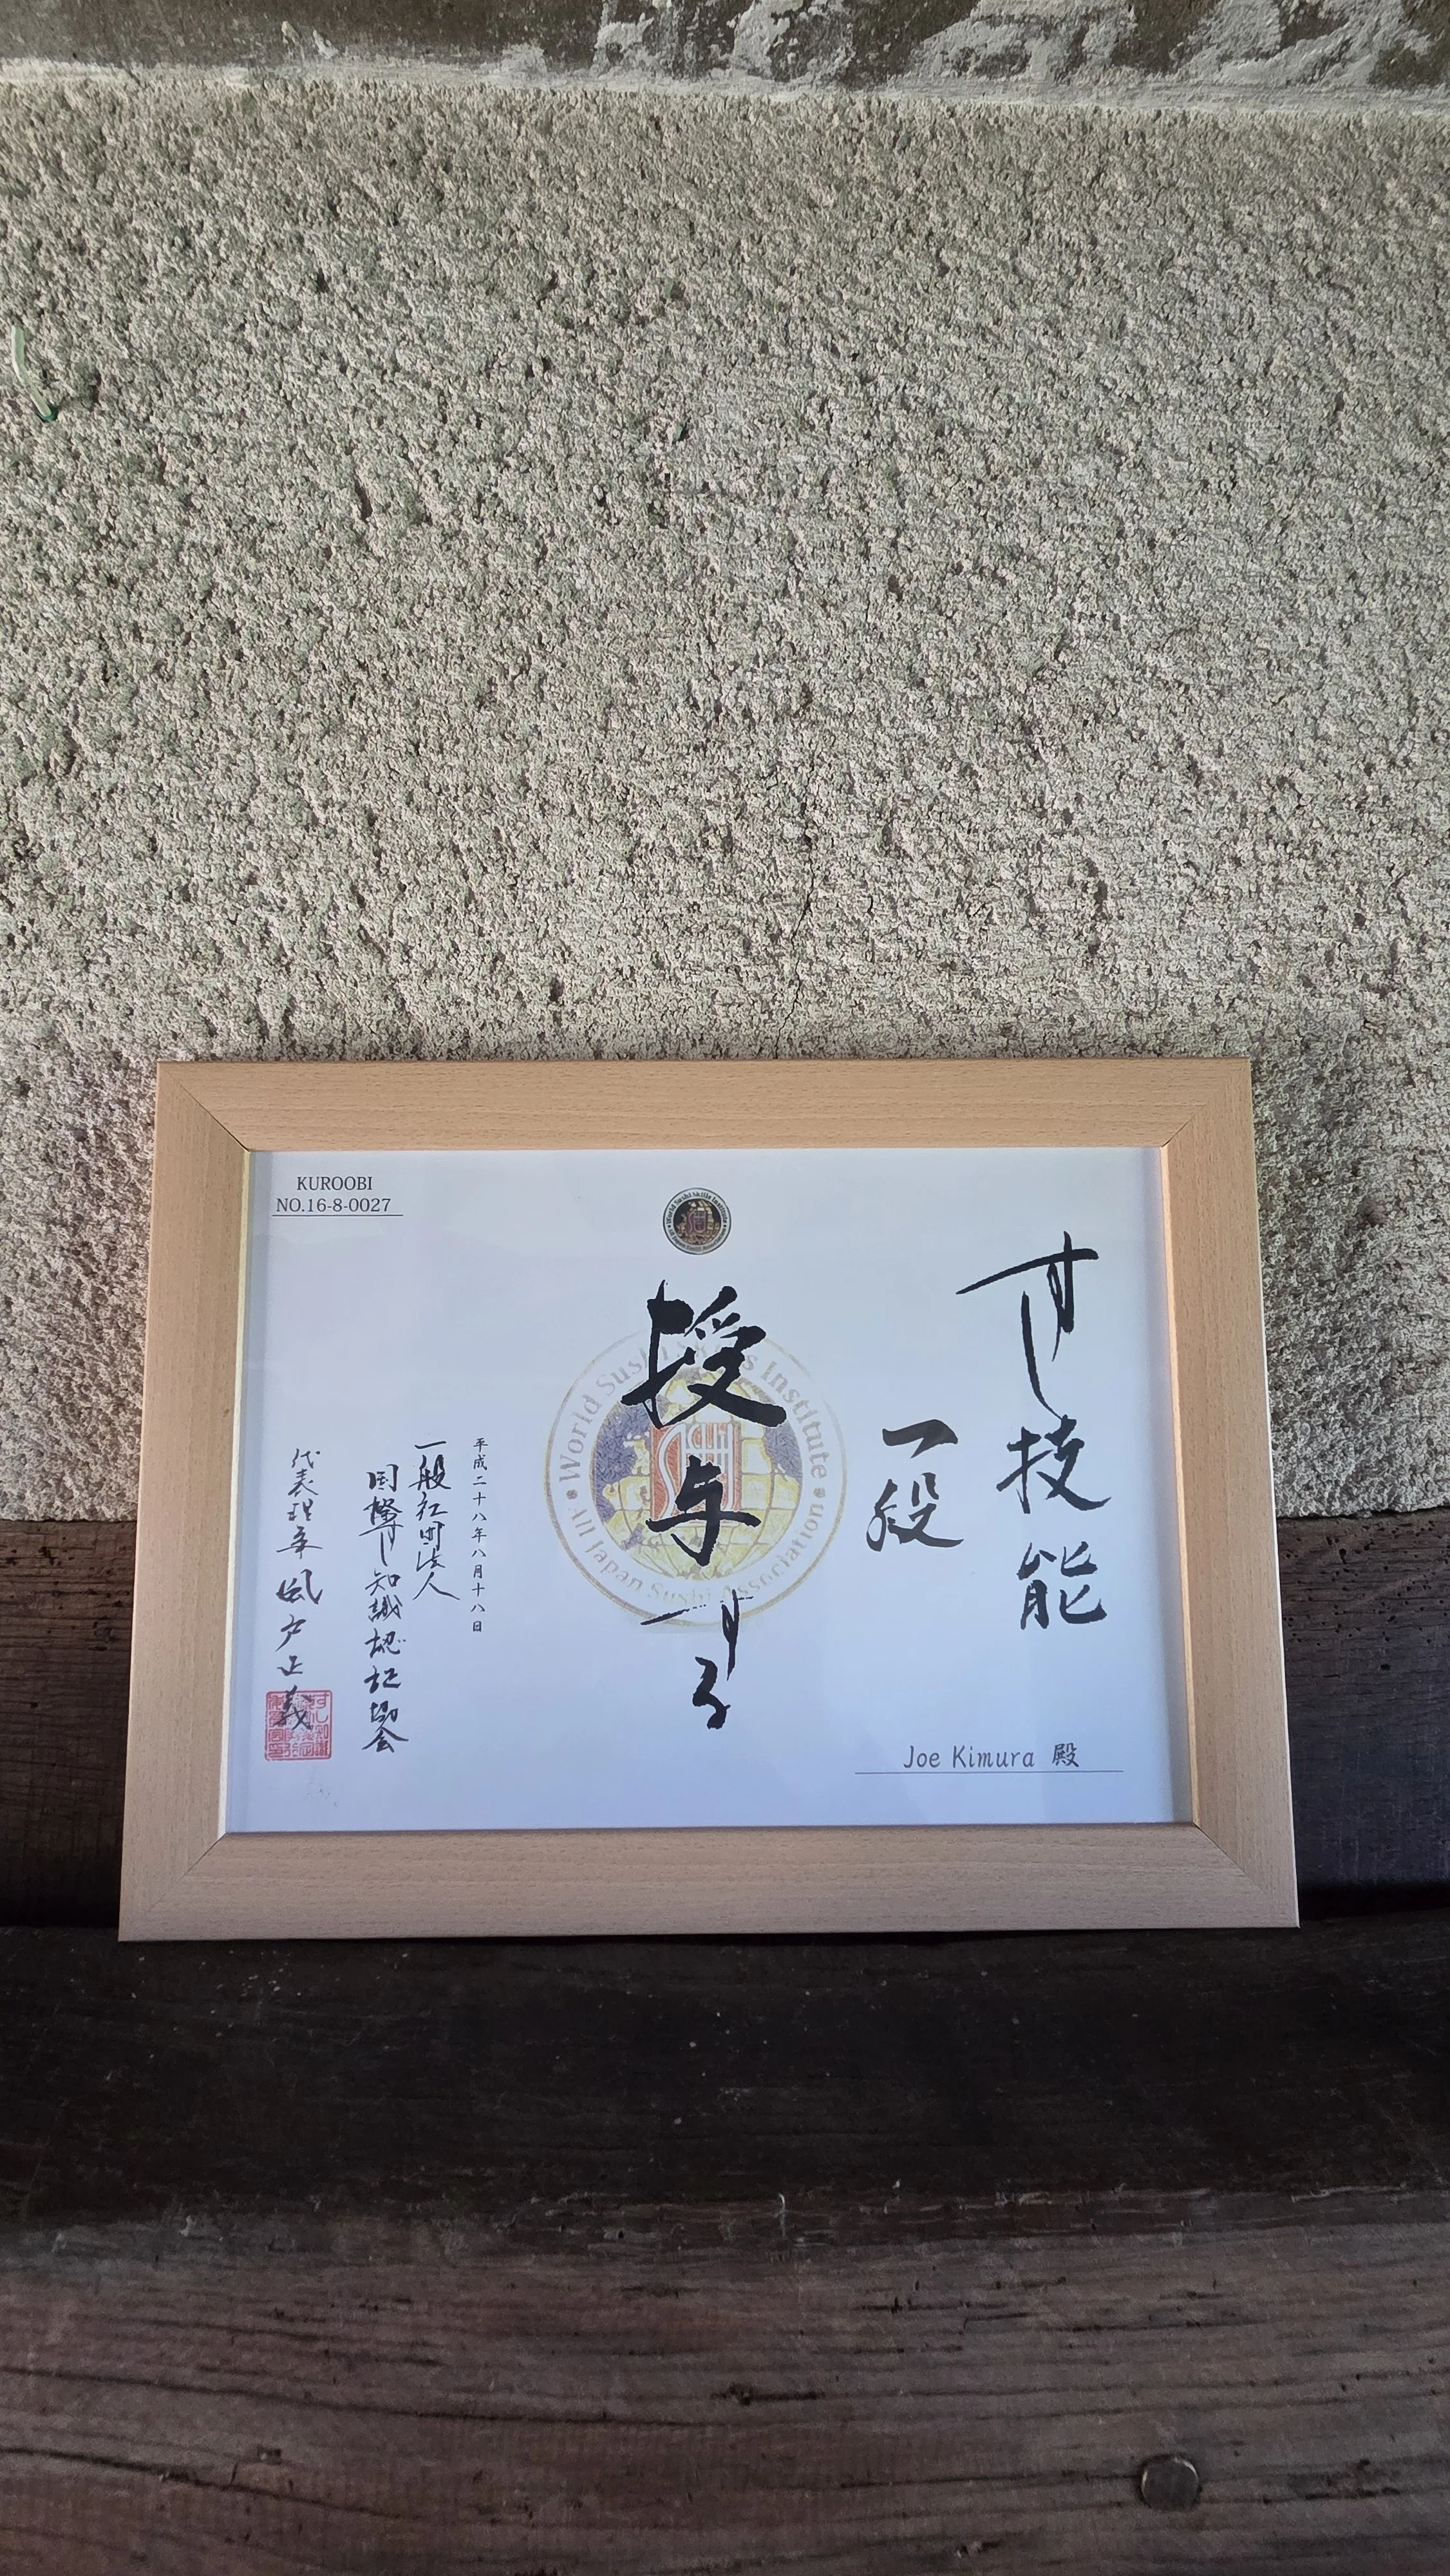 KUROOBI
NO.16-8-0027
World Sushi Skills Institute
All Japan Sushi Association
すし技能
一段
授与する
Joe Kimura 殿
平成二十八年八月十八日
一般社団法人
国際すし知識認証協会
代表理事 風戸正義